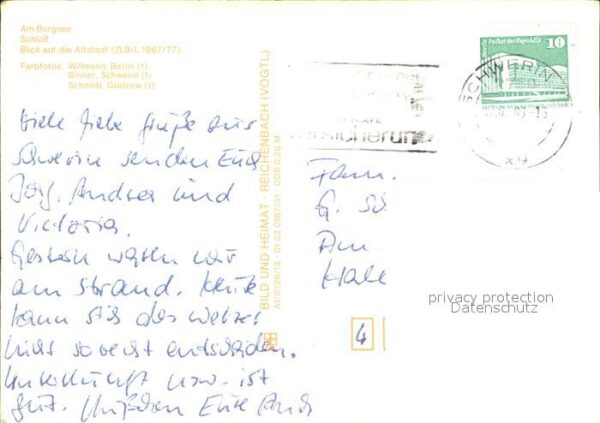 Am Burgsee
Schloß
Blick auf die Altstadt (ZLB/L 1867/77)
Farbfotos: Willmann, Berlin (1)
Binner, Schwerin (1)
Schmidt, Güstrow (1)
Viele liebe Grüße aus
Schwerin senden Euch
Jörg, Andrea und
Victoria.
Gestern waren wir
am Strand. Heute
kann sich das Wetter
nicht so recht entscheiden.
Unterkunft usw. ist
gut.
BILD UND HEIMAT REICHENBACH (VOGTL)
01 02 0187/31 DDR 0,20 M
Palast der Republik
10
SCHWERIN
Fam.
G.
Am
4
privacy protection
Datenschutz